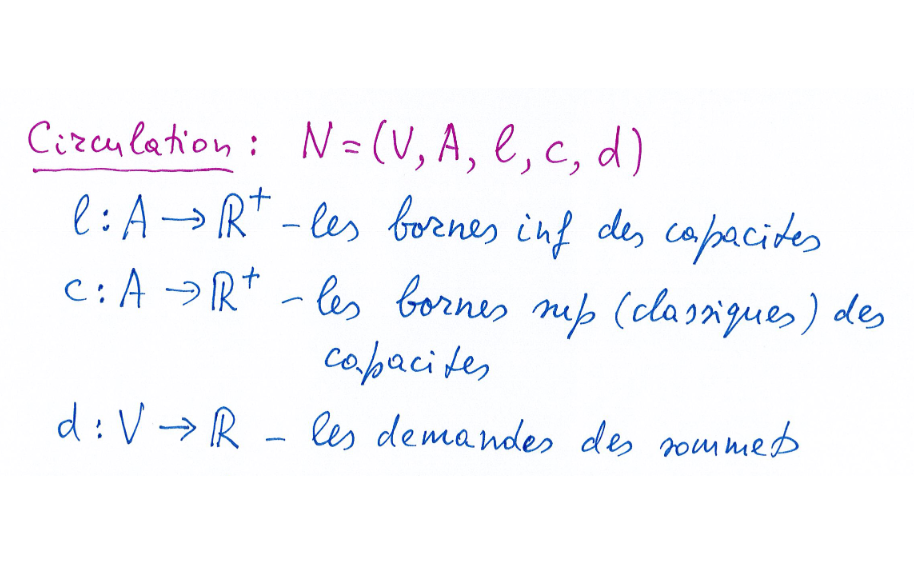 Circulation : N = (V, A, l, c, d)
l : A → ℝ⁺ – les bornes inf des capacites
c : A → ℝ⁺ – les bornes sup (classiques) des
capacites
d : V → ℝ – les demandes des sommets